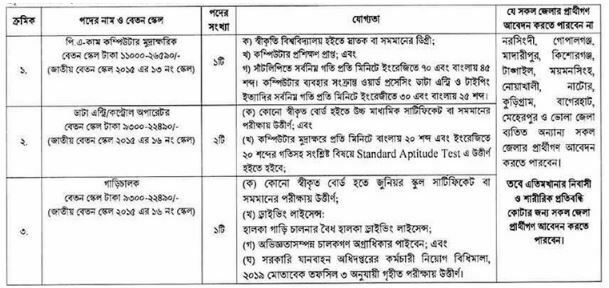 ক্রমিক
পদের নাম ও বেতন স্কেল
পদের
সংখ্যা
যোগ্যতা
যে সকল জেলার প্রার্থীগণ
আবেদন করতে পারবেন না
১.
পি এ-কাম কম্পিউটার মুদ্রাক্ষরিক
বেতন স্কেল টাকা ১১০০০-২৬৫৯০/-
(জাতীয় বেতন স্কেল ২০১৫ এর ১৩ নং স্কেল)
১টি
ক) স্বীকৃতি বিশ্ববিদ্যালয় হইতে স্নাতক বা সমমানের ডিগ্রী;
খ) কম্পিউটার প্রশিক্ষণ প্রাপ্ত; এবং
গ) সাঁটলিপিতে সর্বনিম্ন গতি প্রতি মিনিটে ইংরেজিতে ৭০ এবং বাংলায় ৪৫
শব্দ। কম্পিউটার ব্যবহার সংক্রান্ত ওয়ার্ড প্রসেসিং ডাটা এন্ট্রি ও টাইপিং
ইত্যাদির সর্বনিম্ন গতি প্রতি মিনিটে ইংরেজীতে ৩০ এবং বাংলায় ২৫ শব্দ।
২.
ডাটা এন্ট্রি/কন্ট্রোল অপারেটর
বেতন স্কেল টাকা ৯৩০০-২২৪৯০/-
(জাতীয় বেতন স্কেল ২০১৫ এর ১৬ নং স্কেল)
২টি
(ক) কোনো স্বীকৃত বোর্ড হইতে উচ্চ মাধ্যমিক সার্টিফিকেট বা সমমানের
পরীক্ষায় উত্তীর্ণ; এবং
(খ) কম্পিউটার মুদ্রাক্ষরে প্রতি মিনিটে বাংলায় ২০ শব্দ এবং ইংরেজিতে
২০ শব্দের গতিসহ সংশ্লিষ্ট বিষয়ে Standard Aptitude Test এ উত্তীর্ণ
হইতে হইবে;
৩.
গাড়িচালক
বেতন স্কেল ৯৩০০-২২৪৯০/-
(জাতীয় বেতন স্কেল ২০১৫ এর ১৬ নং স্কেল)
১টি
(ক) কোনো স্বীকৃত বোর্ড হতে জুনিয়র স্কুল সার্টিফিকেট বা
সমমানের পরীক্ষায় উত্তীর্ণ;
(খ) ড্রাইভিং লাইসেন্স:
হালকা গাড়ি চালনার বৈধ হালকা ড্রাইভিং লাইসেন্স;
(গ) অভিজ্ঞতাসম্পন্ন চালকগণ অগ্রাধিকার পাইবেন; এবং
(ঘ) সরকারি যানবাহন অধিদপ্তরের কর্মচারী নিয়োগ বিধিমালা,
২০১৯ মোতাবেক তফসিল ৩ অনুযায়ী গৃহীত পরীক্ষায় উত্তীর্ণ।
নরসিংদী, গোপালগঞ্জ,
মাদারীপুর, কিশোরগঞ্জ,
টাঙ্গাইল, ময়মনসিংহ,
নোয়াখালী, নাটোর,
কুড়িগ্রাম, বাগেরহাট,
মেহেরপুর ও ভোলা জেলা
ব্যতিত অন্যান্য সকল
জেলার প্রার্থীগণ আবেদন
করতে পারবেন।
তবে এতিমখানার নিবাসী
ও শারীরিক প্রতিবন্ধি
কোটার জন্য সকল জেলা
প্রার্থীগণ আবেদন করতে
পারবেন।